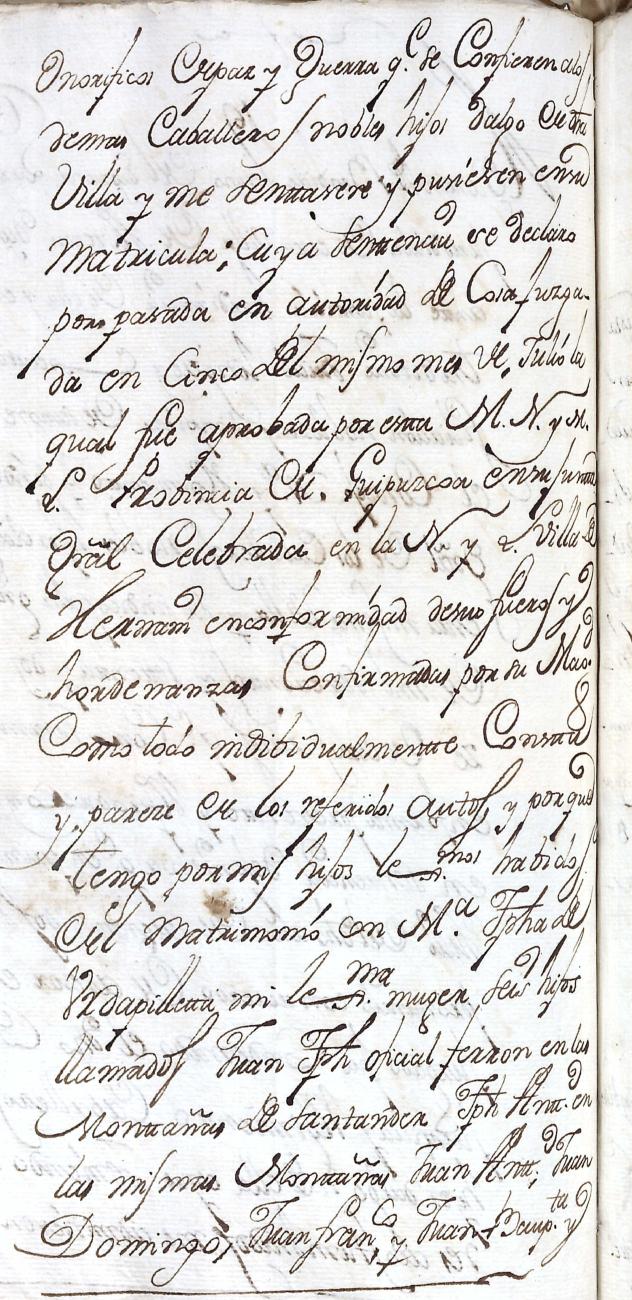 onorificos de paz y Guerra q.e se Confieren alos
demas Caballeros nobles hijos dalgo de dha
Villa y me sentasere y pusiesen en su
Matricula; Cuya sentencia se declaro
por pasada en autoridad de Cosa Juzga-
da en Cinco del mismo mes de Julio la
qual fue aprobada por esta M. N. y M.
L. Probincia de Guipuzcoa en su Junta
Gral Celebrada en la N. y L. Villa de
Hernani en conformidad de sus fueros y
hordenanzas Confirmadas por su Mag.d
Como todo indibidualmente Consta
y pareze de los referidos autos, y porque
tengo por mis hijos le g.mos habidos
del Matrimonio con M.a Jpha de
Urdapilleta mi le g.ma muger seis hijos
llamados Juan Jph oficial ferron en las
Montañas de Santander Jph Ant.o en
las mismas Montañas Juan Ant.o, Juan
Domingo, Juan fran.co y Juan Baup.ta y